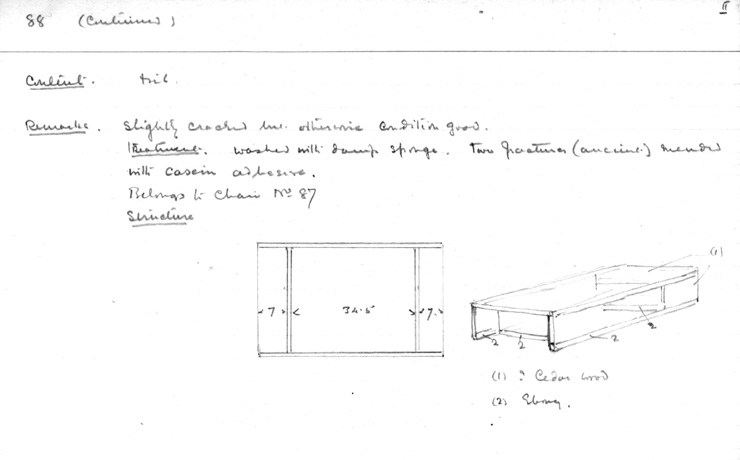 88 (Continued) II
Content. Nil.
Remarks. Slightly cracked but otherwise condition good.
Treatment. washed with damp sponge. Two fractures (ancient) mended
with casein adhesive.
Belongs to Chair No 87
Structure
(1)
7 34.5 7
2
2 2 2
(1) ? Cedar wood
(2) Ebony.